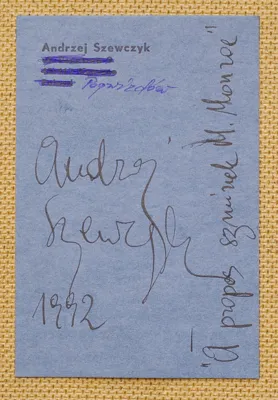 Andrzej Szewczyk
Andrzej
Szewczyk
1992
"A propos szminek M. Monroe"